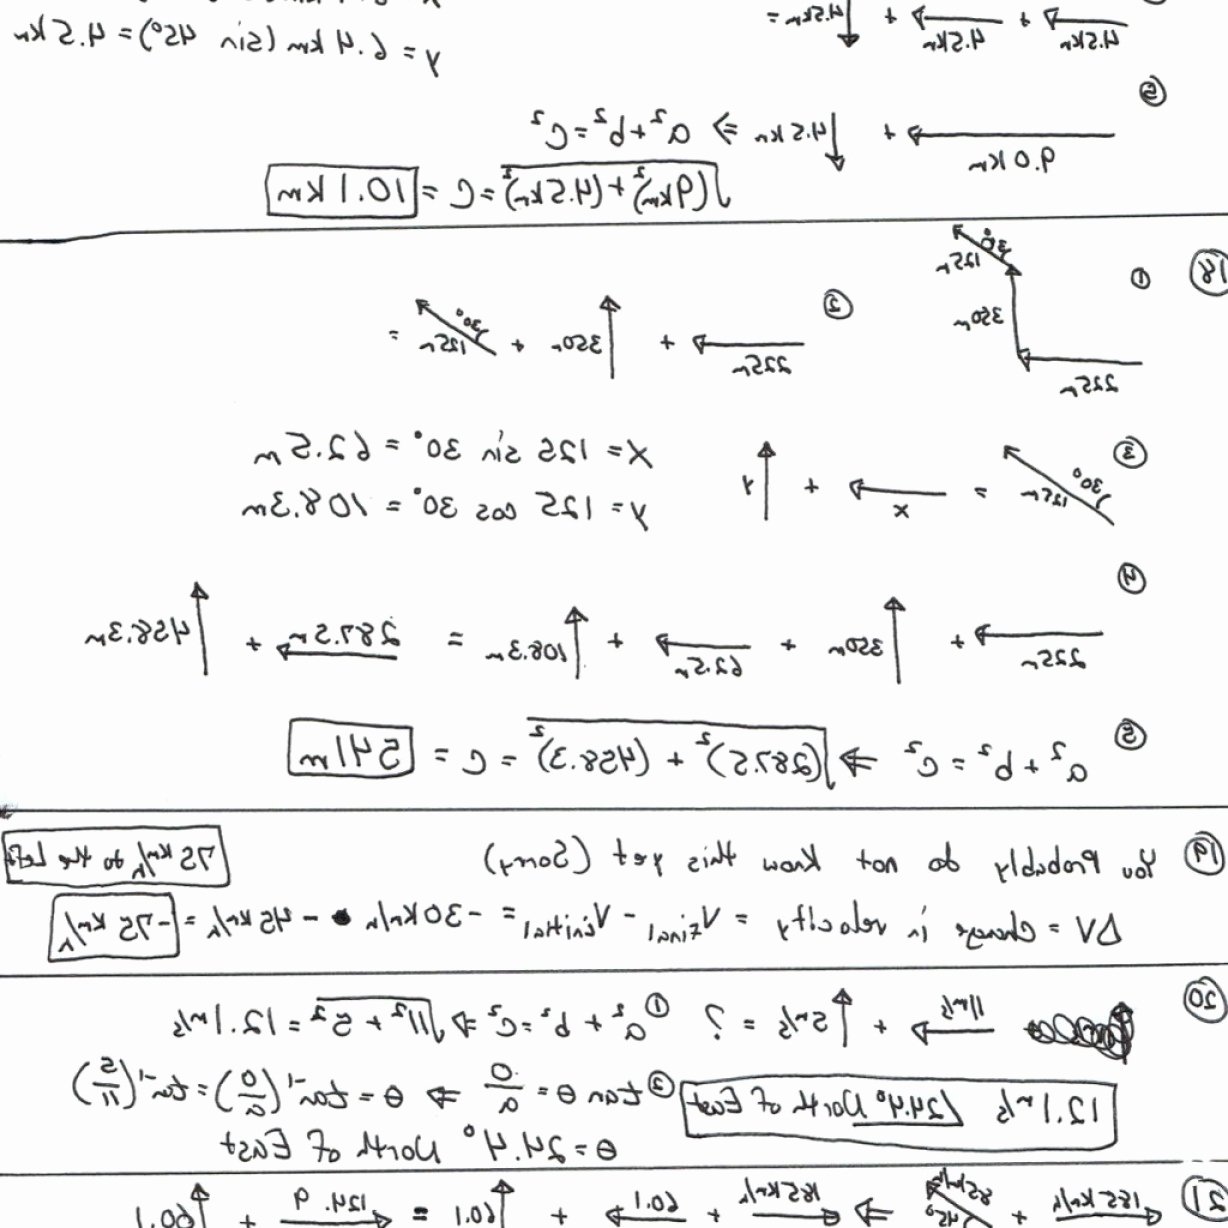 4.5km + 4.5km + 4.5km =
y = 6.4 km (sin 45°) = 4.5 km
⑤ 9.0 km + 4.5 km ⇒ a² + b² = c²
√(9km)² + (4.5km)² = C = 10.1 km
18 ① 225m 350m 125m 30°
② 225m + 350m + 125m 30° =
③ 125m 30° = x + y
x = 125 sin 30° = 62.5 m
y = 125 cos 30° = 108.3m
④ 225m + 350m + 62.5m + 108.3m = 287.5m + 458.3m
⑤ a² + b² = c² ⇒ √(287.5)² + (458.3)² = C = 541 m
19 You Probably do not know this yet (Sorry) 75 km/h to the Left
ΔV = change in velocity = Vfinal - Vinitial = -30km/h - 45km/h = -75 km/h
20 11m/s + 5m/s = ? ① a² + b² = c² ⇒ √11² + 5² = 12.1m/s
12.1m/s ∠24.4° North of East ② tan θ = o/a ⇒ θ = tan⁻¹(o/a) = tan⁻¹(5/11)
θ = 24.4° North of East
21 185km/h + 85km/h 45° ⇒ 185km/h + 60.1 + 60.1 = 124.9 + 60.1